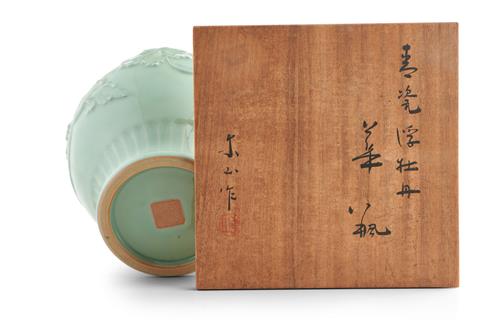 青瓷浮牡丹
華瓶
東山作